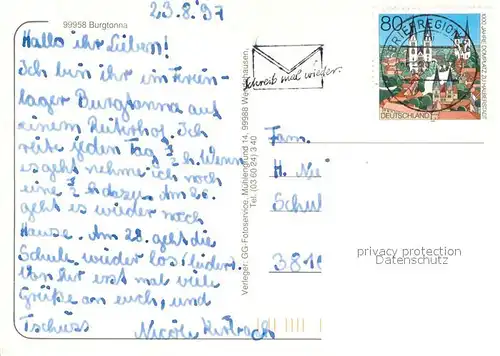 23.8.97
99958 Burgtonna
Hallo ihr Lieben!
Ich bin ihr im Ferien-
lager Burgtonna auf
einem Reiterhof. Ich
reite jeden Tag h. Wenn
es geht nehme ich noch
eine h dazu. Am 26.
geht es wieder nach
Hause. Am 28. geht die
Schule wieder los (leider).
Von hir erst mal viele
Grüße an euch, und
Tschüss
Nicole
Verleger: GG-Fotoservice, Mühlengrund 14, 99988 Wendehausen,
Tel. (03 60 24) 3 40
Schreib mal wieder.
BRIEFREGION
80
1000 JAHRE DOMPLATZ ZU HALBERSTADT
DEUTSCHLAND
Fam.
H. Nei
Schul
381
privacy protection
Datenschutz